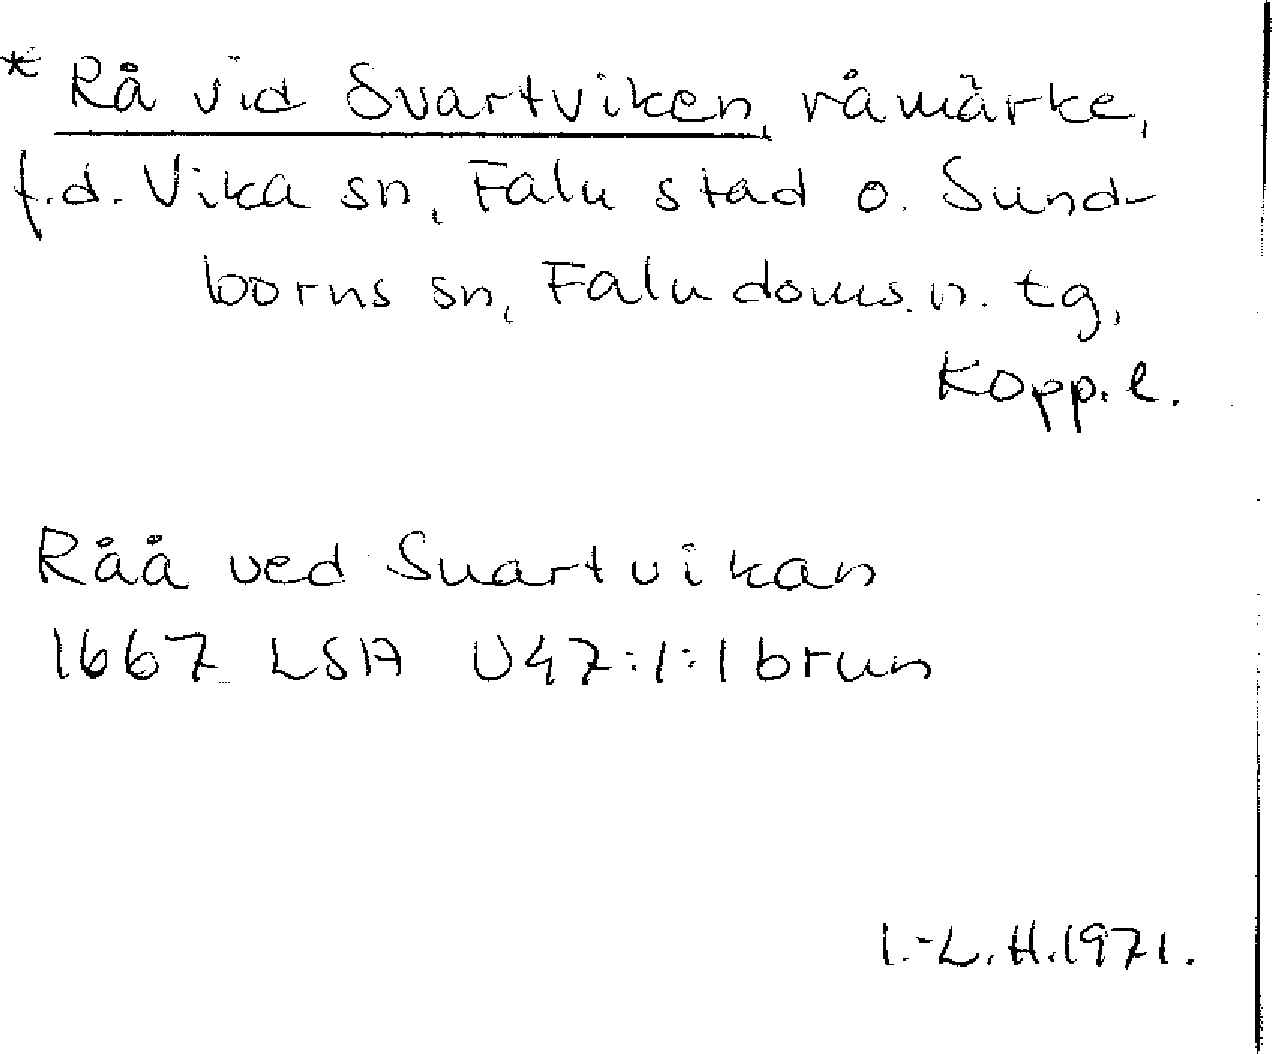 * Rå vid Svartviken, råmärke,
f.d. Vika sn, Falu stad o. Sund-
borns sn, Falu doms.n. tg,
Kopp. l.
Råå ved Suartuikan
1667 LSA U47:1:1 brun
I.-L. H. 1971.